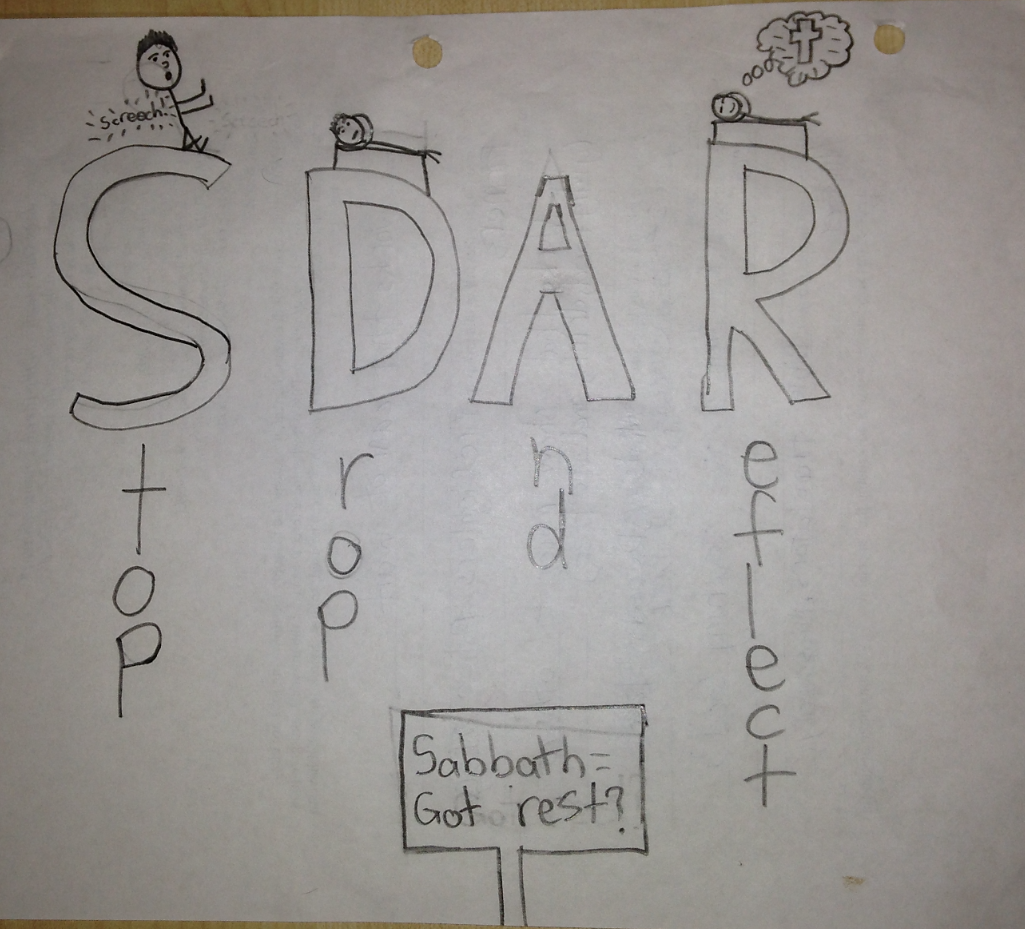 Screech!
Stop
Drop
And
Reflect
Sabbath=
Got rest?